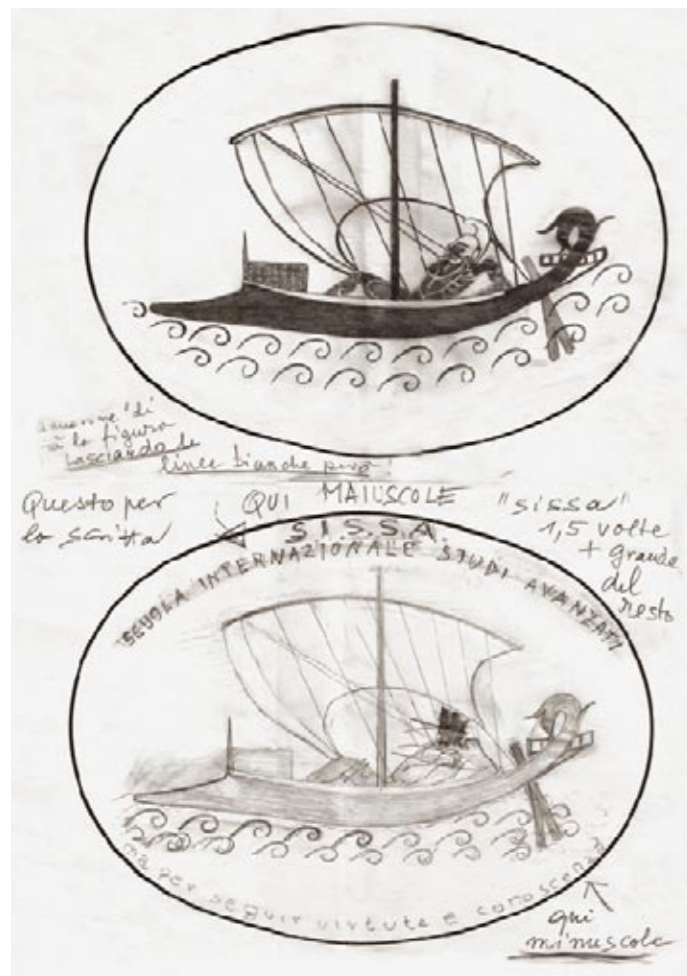 la figura
lasciando le
linee bianche però
Questo per
la scritta
QUI MAIUSCOLE
"sissa"
1,5 volte
+ grande
del
resto
S.I.S.S.A.
SCUOLA INTERNAZIONALE STUDI AVANZATI
ma per seguir virtute e conoscenza
qui
minuscole